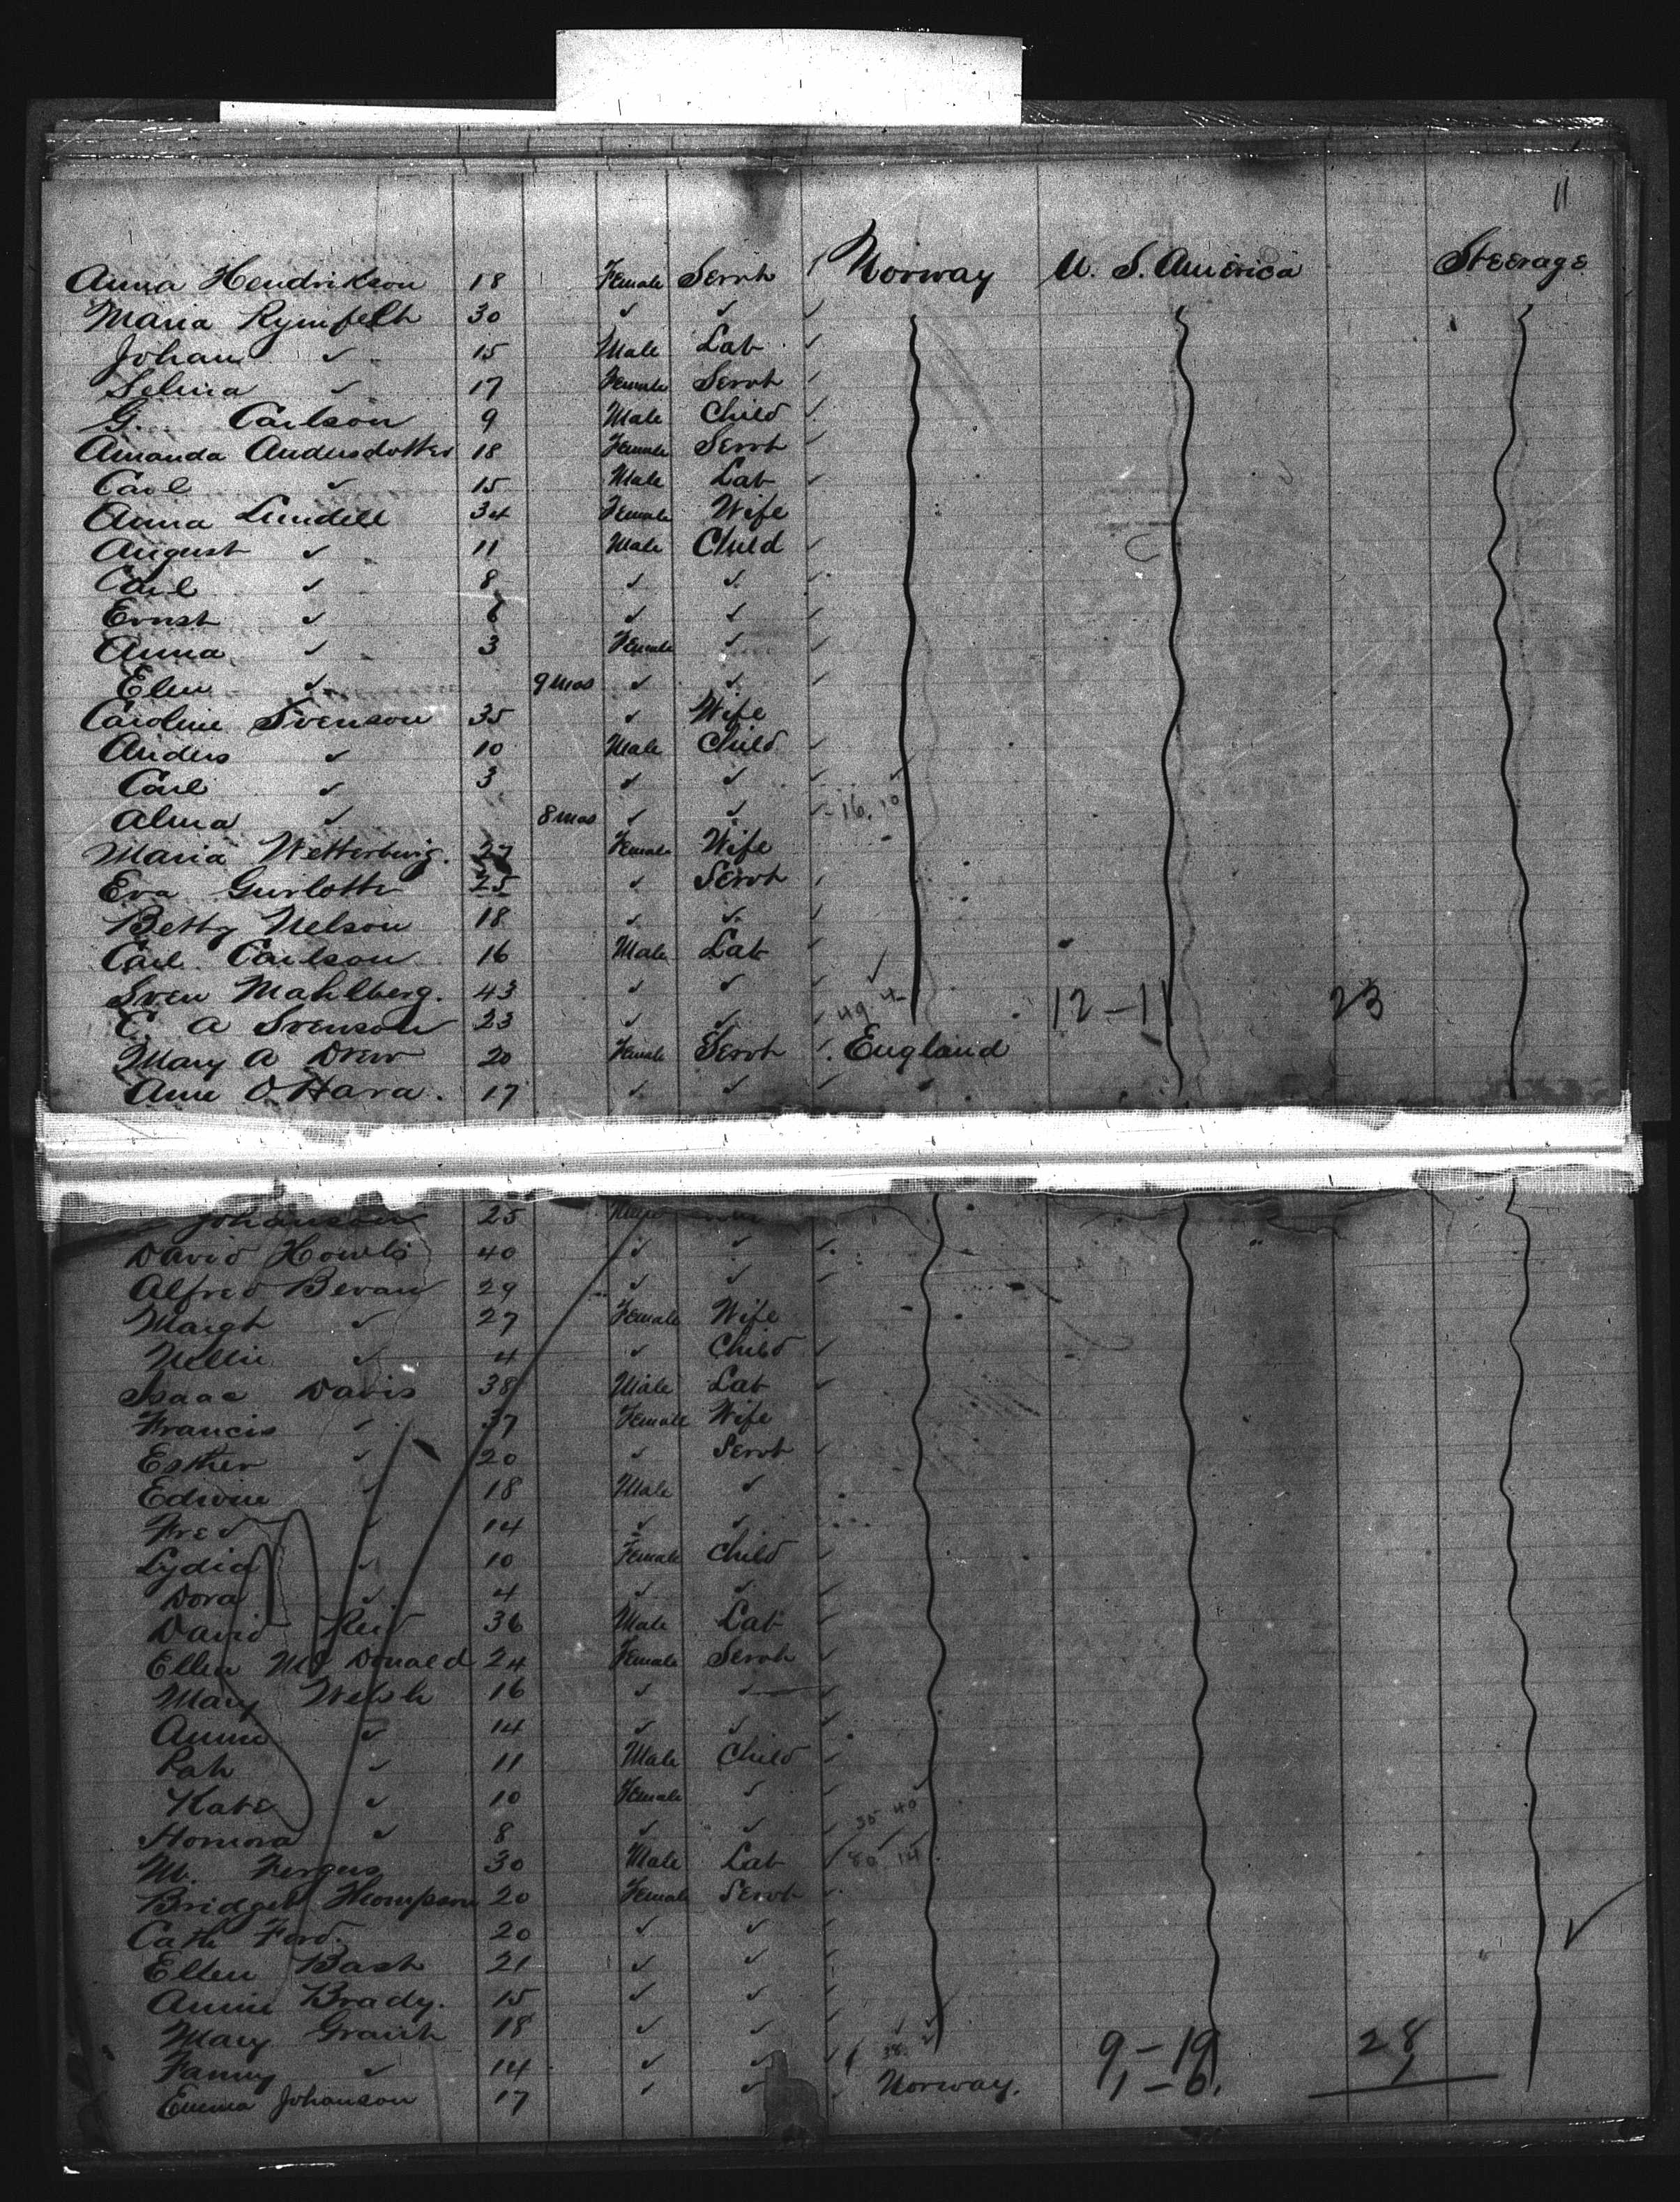 11
Anna Hendrikson 18 Female Servt / Norway U. S. America Steerage
Maria 30 ✓ ✓ ✓
Johan ✓ 15 Male Lab ✓
Selma ✓ 17 Female Servt ✓
G. Carlson 9 Male Child ✓
Amanda Andersdotter 18 Female Servt ✓
Carl ✓ 15 Male Lab ✓
Anna Lundell 34 Female Wife
August ✓ 11 Male Child ✓
Carl ✓ 8 ✓ ✓ ✓
Ernst ✓ 6 ✓ ✓ ✓
Anna ✓ 3 Female ✓ ✓
Elen ✓ 9 mos ✓ ✓ ✓
Caroline Svenson 35 ✓ Wife
Anders ✓ 10 Male Child ✓
Carl ✓ 3 ✓ ✓ ✓
Alma ✓ 8 mos ✓ ✓ ✓ 16. 10
Maria Wetterburg. 27 Female Wife
Eva 25 ✓ Servt ✓
Betty Nelson 18 ✓ ✓ ✓
Carl Carlson 16 Male Lab ✓
Sven Mahlberg. 43 ✓ ✓ ✓ 49 4 12-11 23
C. A Svenson 23 ✓ ✓ ✓
Mary A Drew 20 Female Servt ✓ England
Ann O Hara. 17 ✓ ✓ ✓
Johanson 25 Male
David Howls 40 ✓ ✓ ✓
Alfred Bevan 29 ✓ ✓ ✓
Margt ✓ 27 Female Wife
Nellie ✓ 4 ✓ Child ✓
Isaac Davis 38 Male Lab ✓
Francis ✓ 37 Female Wife
Esther ✓ 20 ✓ Servt ✓
Edwin ✓ 18 Male ✓
Fred ✓ 14 ✓ ✓
Lydia ✓ 10 Female Child ✓
Dora ✓ 4 ✓ ✓ ✓
David Reid 36 Male Lab ✓
Ellen Mc Donald 24 Female Servt ✓
Mary Welsh 16 ✓ ✓ ✓
Annie ✓ 14 ✓ ✓ ✓
Pat ✓ 11 Male Child ✓
Kate ✓ 10 Female ✓ ✓
Honora ✓ 8 ✓ ✓ ✓ 35 40
M. Fergus 30 Male Lab ✓ 80 14
Bridget Thompson 20 Female Servt ✓
Cath Ford. 20 ✓ ✓ ✓
Ellen Bash 21 ✓ ✓ ✓
Annie Brady. 15 ✓ ✓ ✓
Mary 18 ✓ ✓ ✓
Fanny ✓ 14 ✓ ✓ ✓ 38 9-19 28
Emma Johanson 17 ✓ ✓ ✓ Norway. 1-0. 1